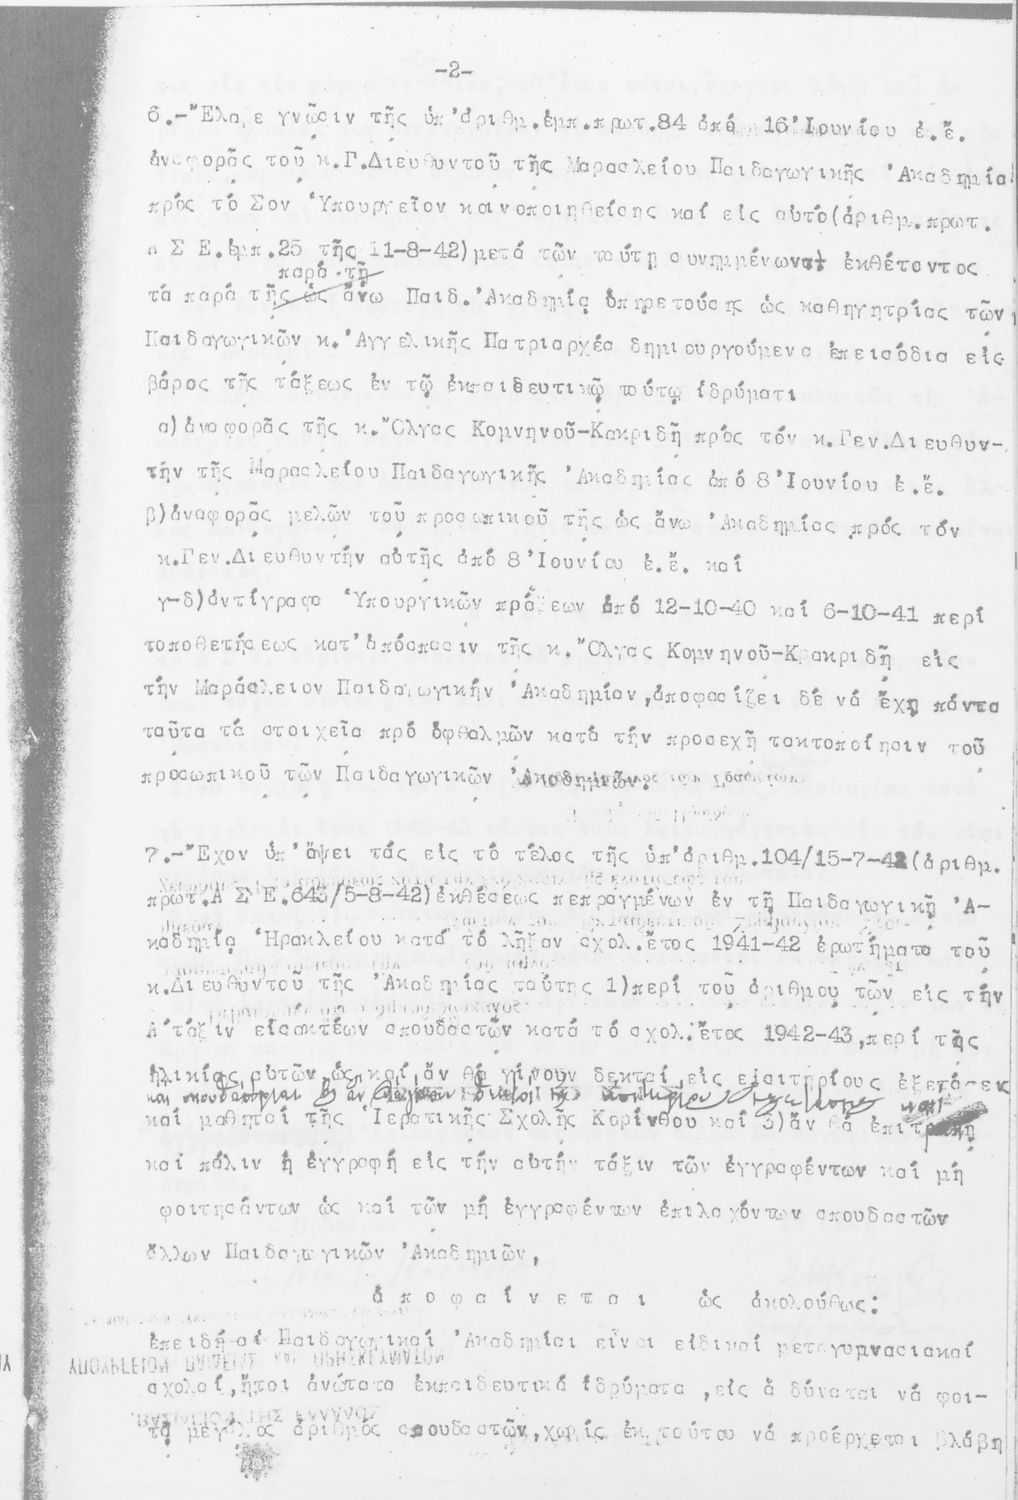 -2-
6.-Ἔλαβε γνῶσιν τῆς ὑπ'ἀριθμ.ἐμπ.πρωτ.84 ἀπό 16 Ἰουνίου ἐ.ἔ.
ἀναφορᾶς τοῦ κ.Γ.Διευθυντοῦ τῆς Μαρασλείου Παιδαγωγικῆς Ἀκαδημία
πρός τό Σον Ὑπουργεῖον κοινοποιηθείσης καί εἰς αὐτό(ἀριθμ.πρωτ.
Α Σ Ε.ἐμπ.25 τῆς 11-8-42)μετά τῶν ταύτῃ συνημμένων ἐκθέτοντος
παρά τῇ
τά παρά τῆς ὡς ἄνω Παιδ.Ἀκαδημίᾳ ὑπηρετούσης ὡς καθηγητρίας τῶν
Παιδαγωγικῶν κ.Ἀγγελικῆς Πατριαρχέα δημιουργούμενα ἐπεισόδια εἰς
βάρος τῆς τάξεως ἐν τῷ ἐκπαιδευτικῷ τούτῳ ἱδρύματι
α)ἀναφορᾶς τῆς κ.Ὄλγας Κομνηνοῦ-Κακριδῆ πρός τόν κ.Γεν.Διευθυν-
τήν τῆς Μαρασλείου Παιδαγωγικῆς Ἀκαδημίας ἀπό 8 Ἰουνίου ἐ.ἔ.
β)ἀναφορᾶς μελῶν τοῦ προσωπικοῦ τῆς ὡς ἄνω Ἀκαδημίας πρός τόν
κ.Γεν.Διευθυντήν αὐτῆς ἀπό 8 Ἰουνίου ἐ.ἔ. καί
γ-δ)ἀντίγραφα Ὑπουργικῶν πράξεων ἀπό 12-10-40 καί 6-10-41 περί
τοποθετήσεως κατ'ἀπόσπασιν τῆς κ.Ὄλγας Κομνηνοῦ-Κακριδῆ εἰς
τήν Μαράσλειον Παιδαγωγικήν Ἀκαδημίαν,ἀποφασίζει δέ νά ἔχῃ πάντα
ταῦτα τά στοιχεῖα πρό ὀφθαλμῶν κατά τήν προσεχῆ τακτοποίησιν τοῦ
προσωπικοῦ τῶν Παιδαγωγικῶν Ἀκαδημιῶν.
7.-Ἔχον ὑπ'ὄψει τάς εἰς τό τέλος τῆς ὑπ'ἀριθμ.104/15-7-42(ἀριθμ.
πρωτ.Α Σ Ε.643/5-8-42)ἐκθέσεως πεπραγμένων ἐν τῇ Παιδαγωγικῇ Ἀ-
καδημίᾳ Ἡρακλείου κατά τό λῆξαν σχολ.ἔτος 1941-42 ἐρωτήματα τοῦ
κ.Διευθυντοῦ τῆς Ἀκαδημίας ταύτης 1)περί τοῦ ἀριθμοῦ τῶν εἰς τήν
Α΄τάξιν εἰσακτέων σπουδαστῶν κατά τό σχολ.ἔτος 1942-43,περί τῆς
ἡλικίας αὐτῶν,ὡς καί ἄν θά γίνουν δεκταί εἰς εἰσιτηρίους ἐξετάσεις
καί σπουδάστριαι 2)ἄν
καί μαθηταί τῆς Ἱερατικῆς Σχολῆς Κορίνθου καί 3)ἄν θά ἐπιτραπῇ
καί πάλιν ἡ ἐγγραφή εἰς τήν αὐτήν τάξιν τῶν ἐγγραφέντων καί μή
φοιτησάντων ὡς καί τῶν μή ἐγγραφέντων ἐπιλαχόντων σπουδαστῶν
ἄλλων Παιδαγωγικῶν Ἀκαδημιῶν,
ἀ π ο φ α ί ν ε τ α ι ὡς ἀκολούθως:
ἐπειδή αἱ Παιδαγωγικαί Ἀκαδημίαι εἶναι εἰδικαί μεταγυμνασιακαί
σχολαί,ἤτοι ἀνώτατα ἐκπαιδευτικά ἱδρύματα,εἰς ἅ δύναται νά φοι-
τᾷ μεγάλος ἀριθμός σπουδαστῶν,χωρίς ἐκ τούτου νά προέρχεται βλάβη